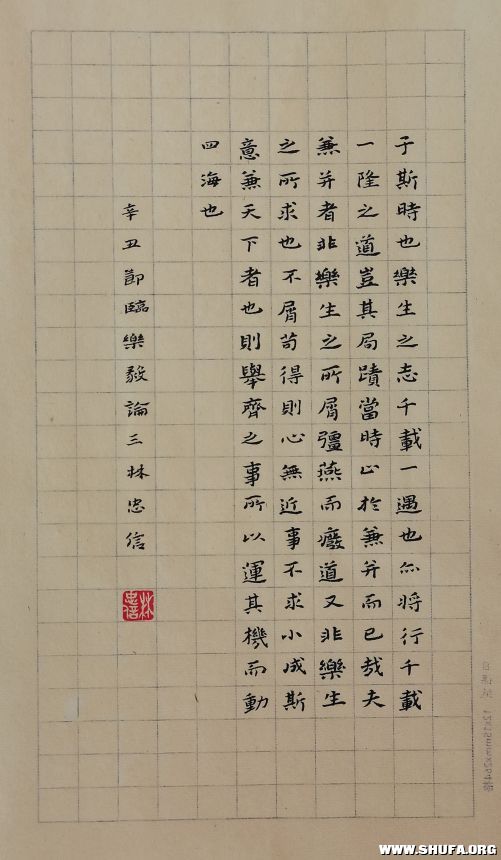 于斯時也樂生之志千載一遇也亦將行千載
一隆之道豈其局蹟當時止於兼并而已哉夫
兼并者非樂生之所屑彊燕而癈道又非樂生
之所求也不屑苟得則心無近事不求小成斯
意兼天下者也則舉齊之事所以運其機而動
四海也
辛丑節臨樂毅論三林忠信
林忠信
12x15mmx264格
WWW.SHUFA.ORG